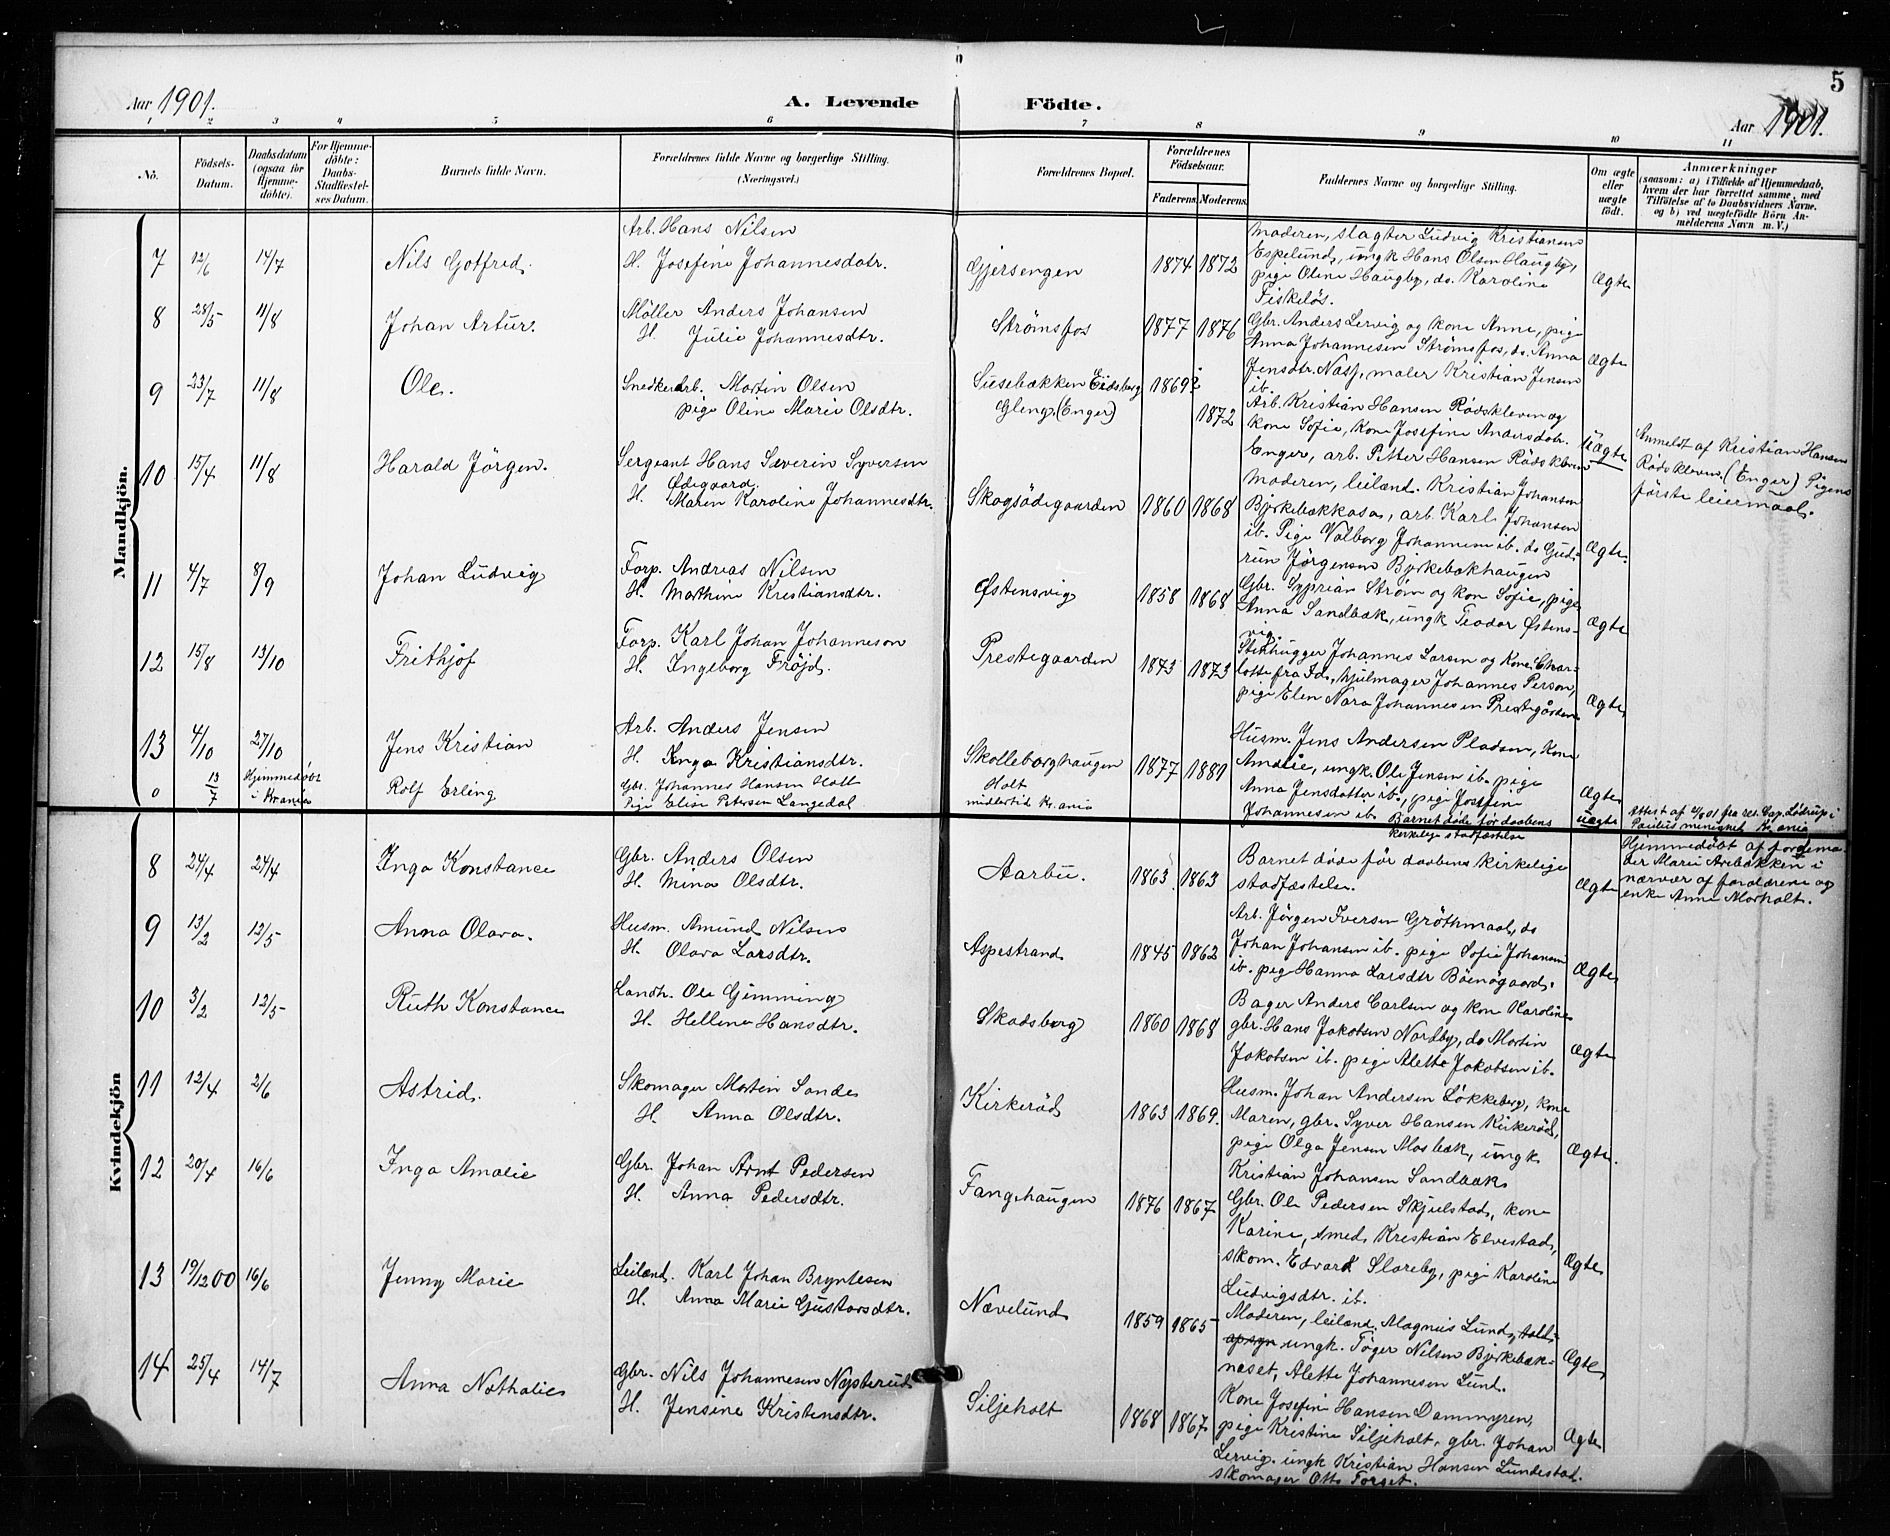 5
Aar 1901.
A. Levende Födte.
Aar 1901.
1 2 3 4 5 6 7 8 9 10 11
No.
Födsels-Datum.
Daabsdatum (ogsaa for Hjemme-döbte).
For Hjemme-döbte: Daabs-Stadfæstel-ses Datum.
Barnets fulde Navn.
Forældrenes fulde Navne og borgerlige Stilling.
(Næringsvei.)
Forældrenes Bopæl.
Forældrenes Födselsaar.
Faderens. Moderens.
Faddernes Navne og borgerlige Stilling.
Om ægte eller uægte födt.
Anmærkninger
(saasom: a) i Tilfælde af Hjemmedaab, hvem der har forrettet samme, med Tilföielse af to Daabsvidners Navne. og b) ved uægtefödte Börn An-melderens Navn m. V.)
Mandkjön.
7 12/6 14/7 Nils Gotfred.
Arb. Hans Nilsen
H. Josefine Johannesdatr.
Gjersengen 1874 1872
Moderen, slagter Ludvig Kristiansen
Espelund, ungk Hans Olsen Haugby,
pige Oline Haugby, do. Karoline
Fiskelös.
Ægte
8 28/5 11/8 Johan Artur.
Möller Anders Johansen
H. Julie Johannesdtr.
Strømsfos 1877 1876
Gbr. Anders Lervig og kone Anne, pige
Anna Johannesen Strømsfos, do. Anna
Jensdtr. Næs, maler Kristian Jensen
ib.
Ægte
9 23/7 11/8 Ole.
Snedkerarb. Martin Olsen
pige Oline Marie Olsdtr.
Susebækken Eidsberg 1869?
Gleng (Enger) 1872
Arb. Kristian Hansen Rødskleven og
kone Sofie, Kone Josefine Andersdatr.
Enger, arb. Petter Hansen Rødskleven
Uægte
Anmeldt af Kristian Hansen
Rødskleven (Enger) Pigens
første leiermaal.
10 15/4 11/8 Harald Jörgen.
Sergeant Hans Severin Syversen
Ødegaard.
H. Maren Karoline Johannesdtr.
Skogsödegaarden 1860 1868
Moderen, leilænd. Kristian Johansen
Bjørkebækkasa, arb. Karl Johansen
ib. Pige Valborg Johannesen ib. do Gud-
run Jörgensen Bjørkebækhaugen
Ægte.
11 4/7 8/9 Johan Ludvig
Forp. Andreas Nilsen
H. Mathine Kristiansdtr.
Østensvig 1858 1868
Gbr. Syprian Strøm og kone Sofie, pige
Anna Sandbæk, ungk Teodor Østens-
vig.
Ægte
12 15/8 13/10 Frithjof
Forp. Karl Johan Johanneson
H. Ingeborg Fröjd.
Prestegaarden 1873 1873
Stenhugger Johannes Larsen og Kone Char-
lotte fra Id, hjulmager Johannes Person,
pige Elen Nora Johannesen Prestegården
Ægte
13 4/10 27/10 Jens Kristian
Arb. Anders Jensen
H. Inga Kristiansdtr.
Skolleborghaugen 1877 1881
Husm. Jens Andersen Pladsen, Kone
Amalie, ungk. Ole Jensen ib. pige
Anna Jensdatter ib., pige Josefine
Johannesen ib.
Ægte
0 13/7 Hjemmedøbt i Kr.ania Rolf Erling
Gbr. Johannes Hansen Holt
Pige Elise Petersen Langedal
Holt
midlertid. Kr.ania
Barnet døde før daabens
kirkelige stadfæstelse
uægte
Attest af fra res. Cap. Lødrup i
Paulus menighet Kr.ania
Kvindekjön
8 24/4 24/4 Inga Konstance
Gbr. Anders Olsen
H. Mina Olsdtr.
Aarbu. 1863. 1863
Barnet døde før daabens kirkelige
stadfæstelse.
Ægte
Hjemmedøbt af jordemo-
der Marie Arebakken i
nærvær af forældrene og
enke Anne Morholt.
9 13/2 12/5 Anna Olava.
Husm. Amund Nilsen
H. Olava Larsdtr.
Aspestrand 1845 1862
Arb. Jörgen Iversen Gröthmaal, do
Johan Johansen ib. pige Sofie Johansen
ib. pige Hanna Larsdtr Böensgaard.
Ægte
10 3/2 12/5 Ruth Konstance
Landh. Ole Gimming
H. Helline Hansdtr.
Skadsberg 1860 1868
Bager Anders Carlsen og kone Karoline
gbr. Hans Jakobsen Nordby, do Martin
Jakobsen ib. pige Alette Jakobsen ib.
Ægte
11 12/4 2/6 Astrid.
Skomager Martin Sande
H. Anna Olsdtr.
Kirkeröd 1863 1869.
Husm. Johan Andersen Løkkeberg, kone
Maren, gbr. Syver Hansen Kirkeröd,
pige Olga Jensen Mosbæk, ungk
Kristian Johansen Sandbæk
Ægte.
12 20/4 16/6 Inga Amalie
Gbr. Johan Arnt Pedersen
H. Anna Pedersdtr.
Fangehaugen 1876 1867
Gbr. Ole Pedersen Skjulstad, kone
Karine, smed Kristian Elvestad,
skom. Edvard Slareby, pige Karoline
Ludvigsdtr. ib.
Ægte
13 19/12 00 16/6 Jenny Marie
Leilænd. Karl Johan Bryntesen
H. Anna Marie Gustavsdtr.
Nævelund 1859 1865
Moderen, leilænd. Magnus Lund, told-
opsyn ungk. Töger Nilsen Bjørkebæk-
næset, Alette Johannesen Lund.
Ægte
14 25/4 14/7 Anna Nathalie
Gbr. Nils Johannesen Nysterud
H. Jensine Kristensdtr.
Siljeholt 1868 1867
Kone Josefine Hansen Dammyren,
pige Kristine Siljeholt, gbr. Johan
Lervig. ungk Kristian Hansen Lundestad
skomager Otto Torget.
Ægte